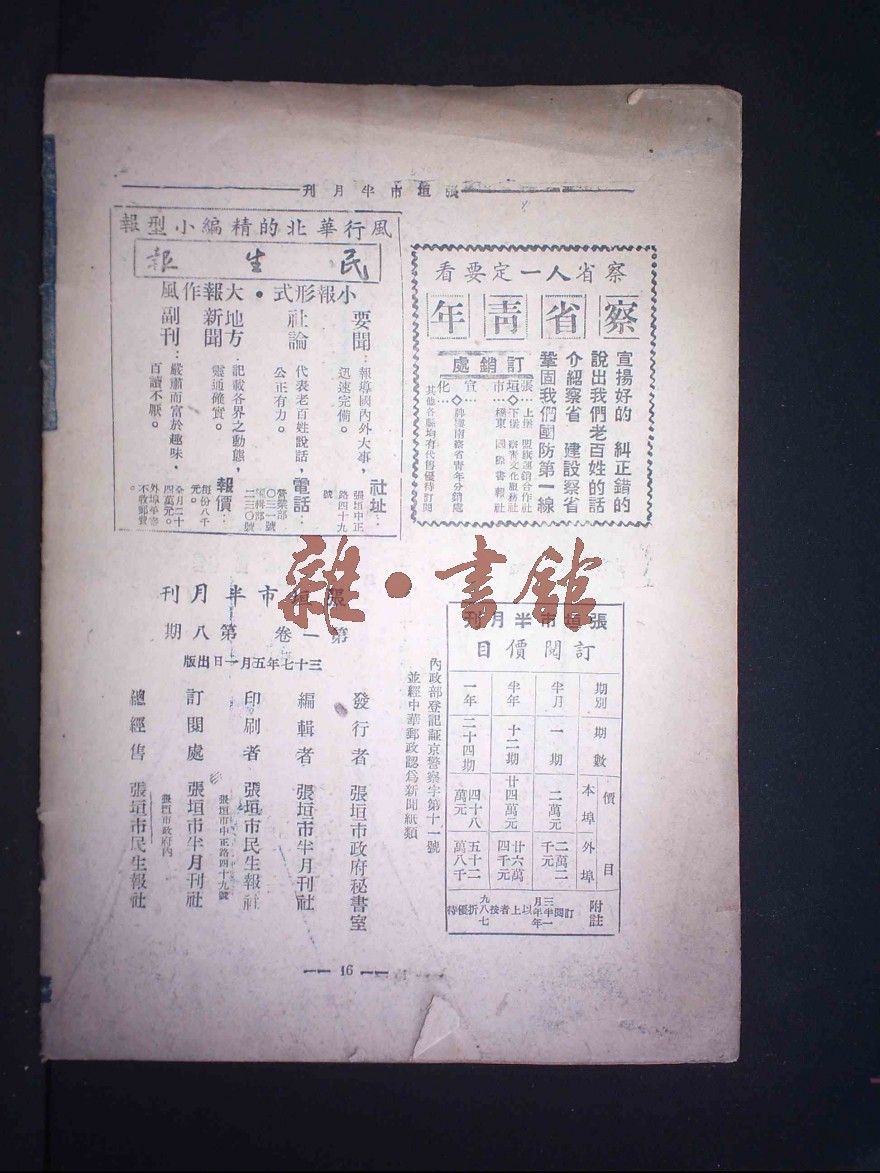 張垣市半月刊
察省人一定要看
察省靑年
宣揚好的 糾正錯的
說出我們老百姓的話
介紹察省 建設察省
鞏固我們國防第一線
訂銷處
張垣市…
上堡 盟旗運銷合作社
下堡 察靑文化服務社
橋東 國際書報社
宣化…
牌樓南察省靑年分銷處
其他各縣均有代售優待訂閱
風行華北的精編小型報
民生報
小報形式•大報作風
要聞：報導國內外大事，
迅速完備。
社論：代表老百姓說話，
公正有力。
地方新聞：記載各界之動態，
靈通確實。
副刊：嚴肅而富於趣味，
百讀不厭。
社址：張垣中正
路四十九
號
電話：營業部
〇三一號
編輯部
二三〇號
報價：每份八千
元。
全月二十
四萬元。
外埠平寄
不收郵費
雜·書館
張垣市半月刊
訂閱價目
期別 期數 價目 本埠 外埠 附註
半月 一期 二萬元 二萬二千元
半年 十二期 廿四萬元 廿六萬四千元
一年 二十四期 四十八萬元 五十二萬八千
訂閱三月半年一年以上者按九八七折優待
內政部登記証京警察字第十一號
並經中華郵政認爲新聞紙類
張垣市半月刊
第一卷 第八期
三十七年五月一日出版
發行者 張垣市政府秘書室
編輯者 張垣市半月刊社
印刷者 張垣市民生報社
張垣市中正路四十九號
訂閱處 張垣市半月刊社
張垣市政府內
總經售 張垣市民生報社
16